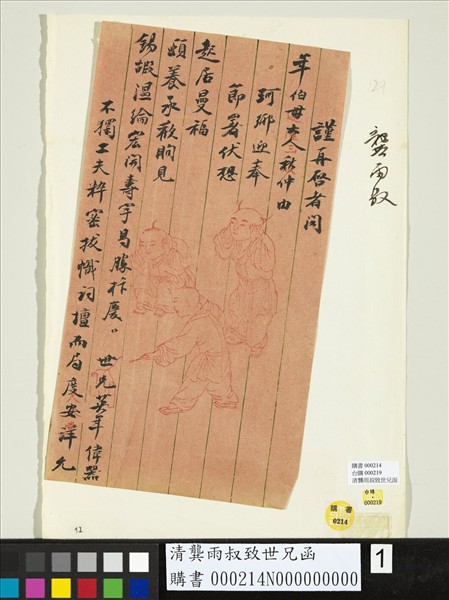 謹再啓者聞
年伯母太夫人於秋仲由
珂鄉迎奉
節署伏想
起居曼福
頤養承歡駒見
錫嘏溫綸宏開壽宇曷勝抃慶。世兄英年偉器
不獨工夫粹密拔幟詞壇而局度安詳允
龔雨叔
129
購書 000214
台購 000219
清龔雨叔致世兄函
台購
000219
購書
0214
12
清龔雨叔致世兄函
購書 000214N000000000
1